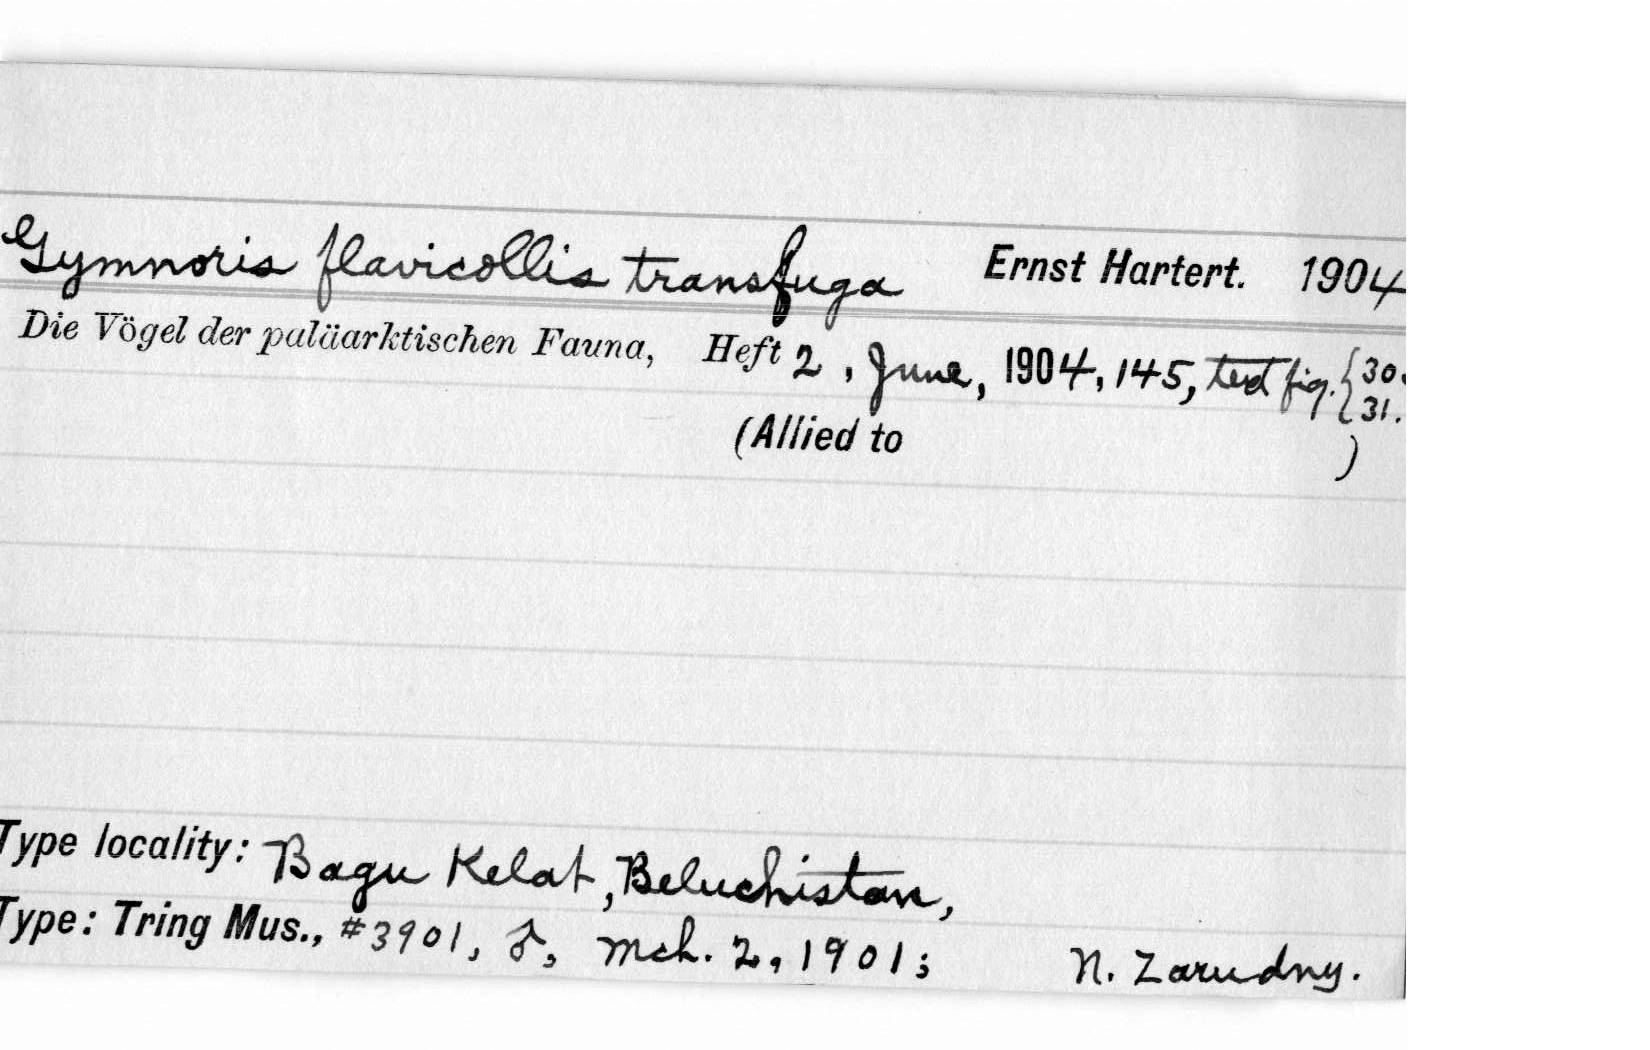 Gymnoris flavicollis transfuga Ernst Hartert. 1904
Die Vögel der paläarktischen Fauna, Heft 2, June, 1904, 145, text fig. {30.
31.
(Allied to )
Type locality: Bagu Kelat, Beluchistan,
Type: Tring Mus., #3901, ♂, Mch. 2, 1901; N. Zarudny.